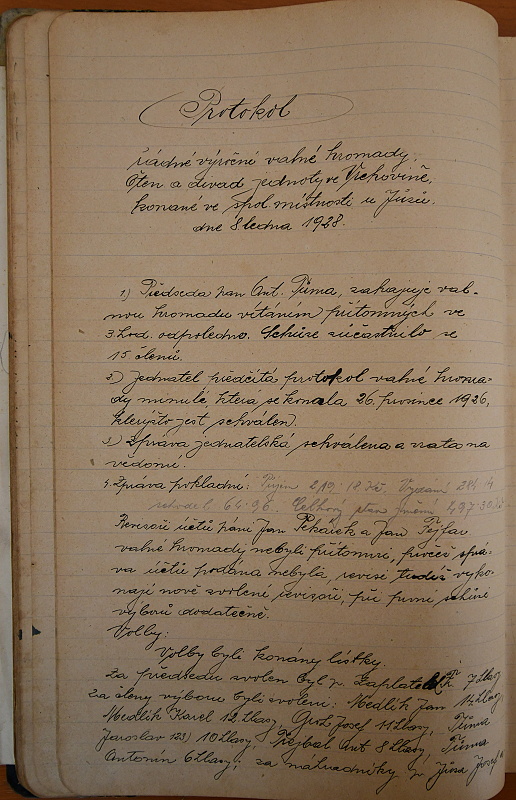 Protokol
řádné výroční valné hromady,
Čten a divad jednoty ve Vrchovině,
konané ve spol. místnosti u Jůzů.
dne 8 ledna 1928.
1) Předseda pan Ant. Tůma, zahajuje val-
nou hromadu vítáním přítomných ve
3. hod. odpoledne. Schůze súčastnilo se
15 členů.
2) Jednatel předčítá protokol valné hroma-
dy minulé která se konala 26. prosince 1926,
kterýžto jest schválen.
3) Zpráva jednatelská schválena a vzata na
vědomí.
4. Zpráva pokladní: Příjem 219.18 Kč. Vydání
schodek 64.96. Celkový stav jmění 497.30 Kč
Revisoři účtů páni Jan Pekárek a Jan Fejfar
valné hromady nebyli přítomni, pročež sprá-
va účtů podána nebyla, revisi tudíž vyko-
nají nově zvolení revisoři, při první schůzi
výboru dodatečně.
Volby:
Volby byli konány lístky.
Za předsedu zvolen byl p. Zaplatel 7 hlasy
za členy výboru byli zvoleni: Medlík Jan 14 hlasy
Medlík Karel 12 hlasy, Josef 11 hlasy, Tůma
Jaroslav 123) 10 hlasy, Rejbal Ant 8 hlasy, Tůma
Antonín 6 hlasy; za náhradníky p Jůza Josef